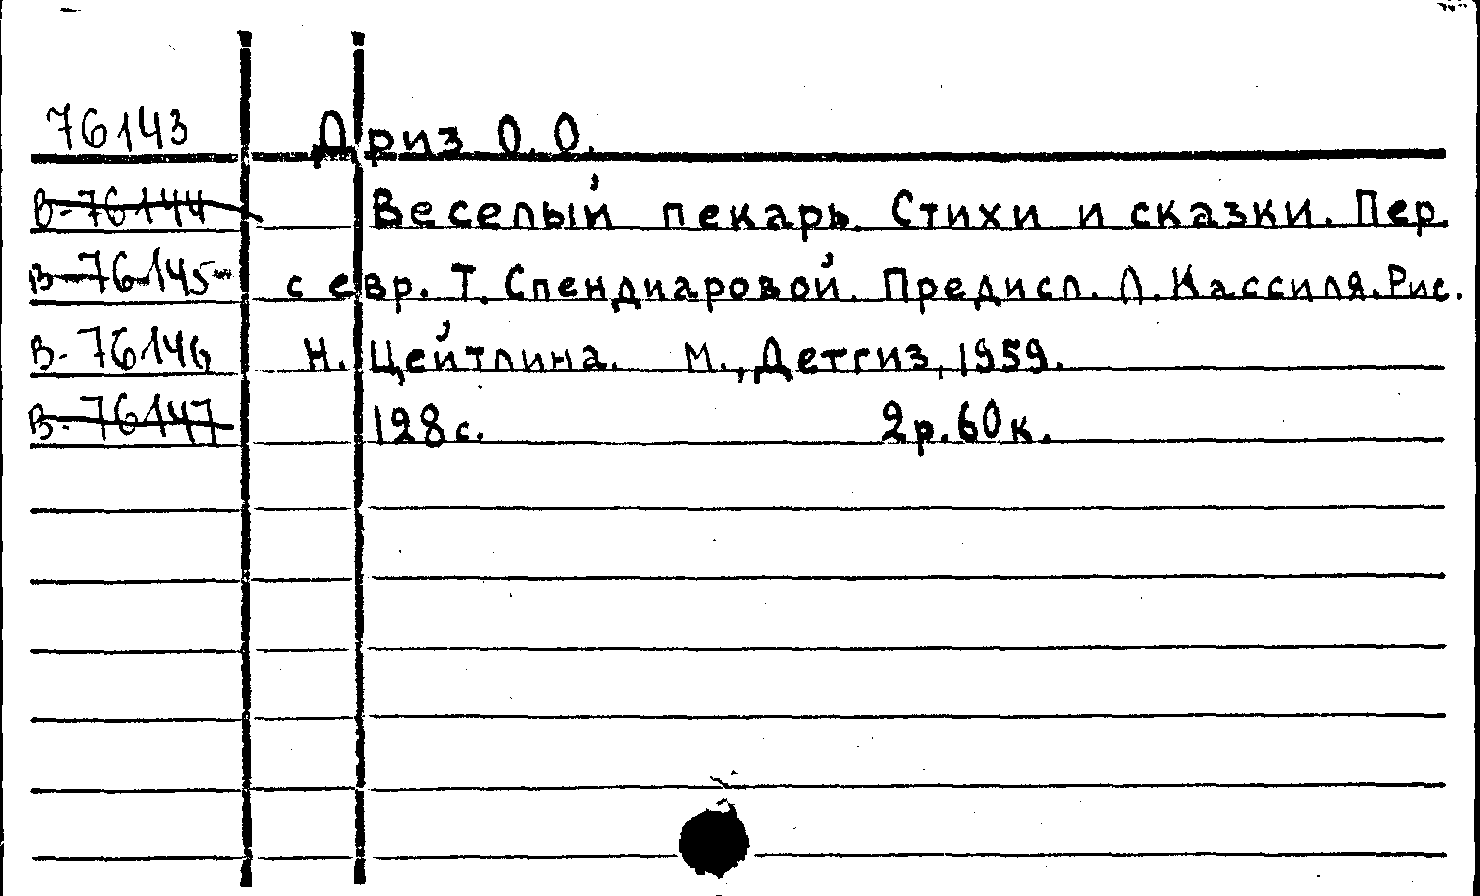 76143 Дриз О. О.
В-76144 Веселый пекарь. Стихи и сказки. Пер.
В-76145 с евр. Т. Спендиаровой. Предисл. Л. Кассиля. Рис.
В-76146 Н. Цейтлина. М., Детгиз, 1959.
В-76147 128 с. 2р. 60к.